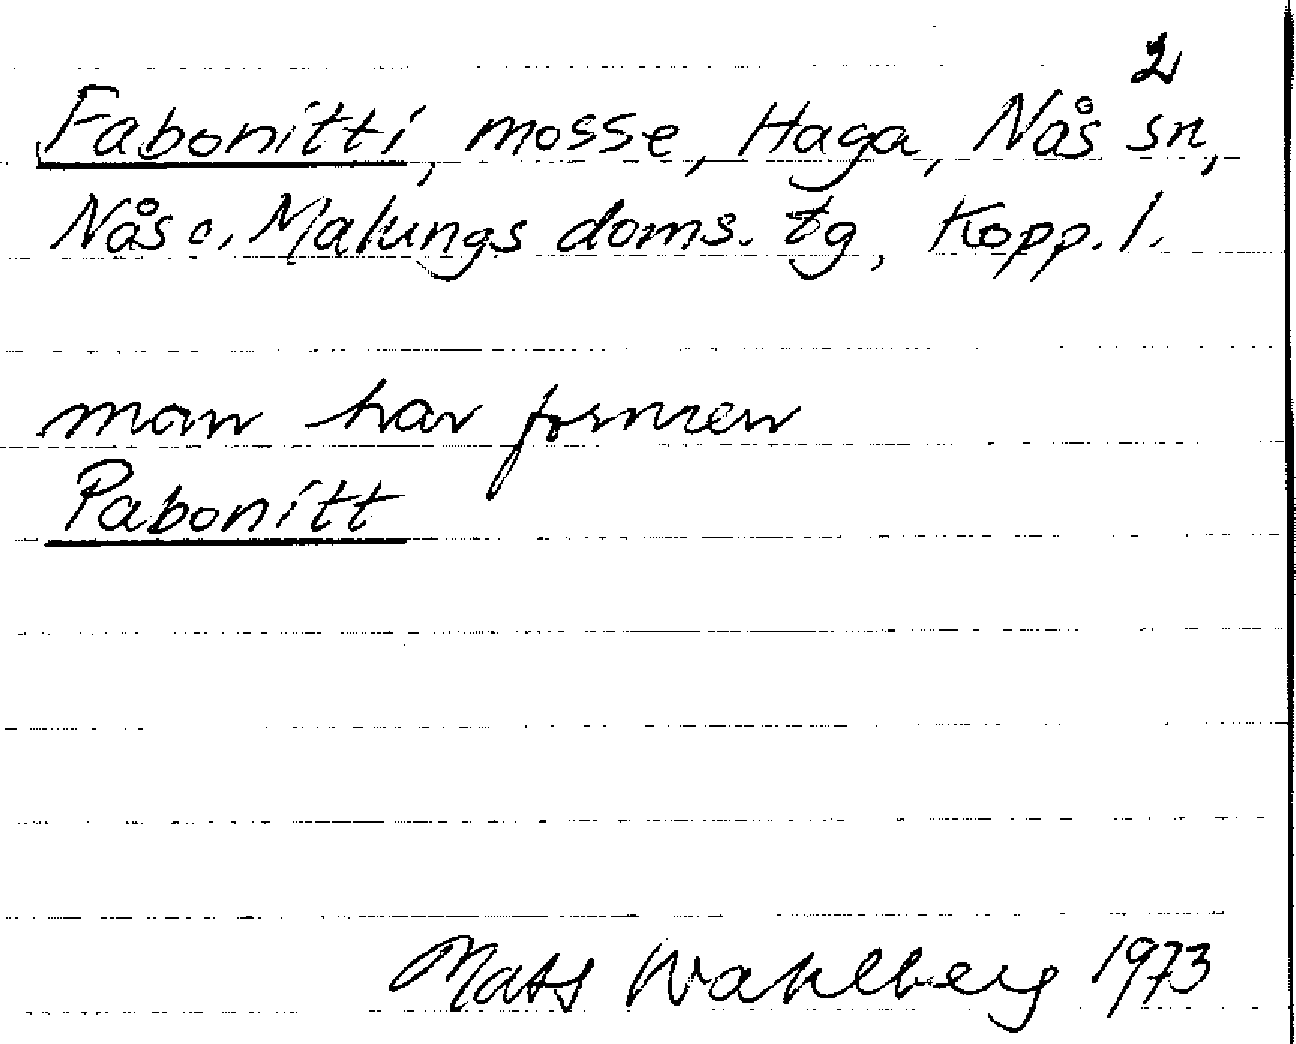 2
Fabonitti, mosse, Haga, Nås sn,
Nås o. Malungs doms. tg, Kopp. l.
man har formen
Pabonitt
Mats Wahlberg 1973